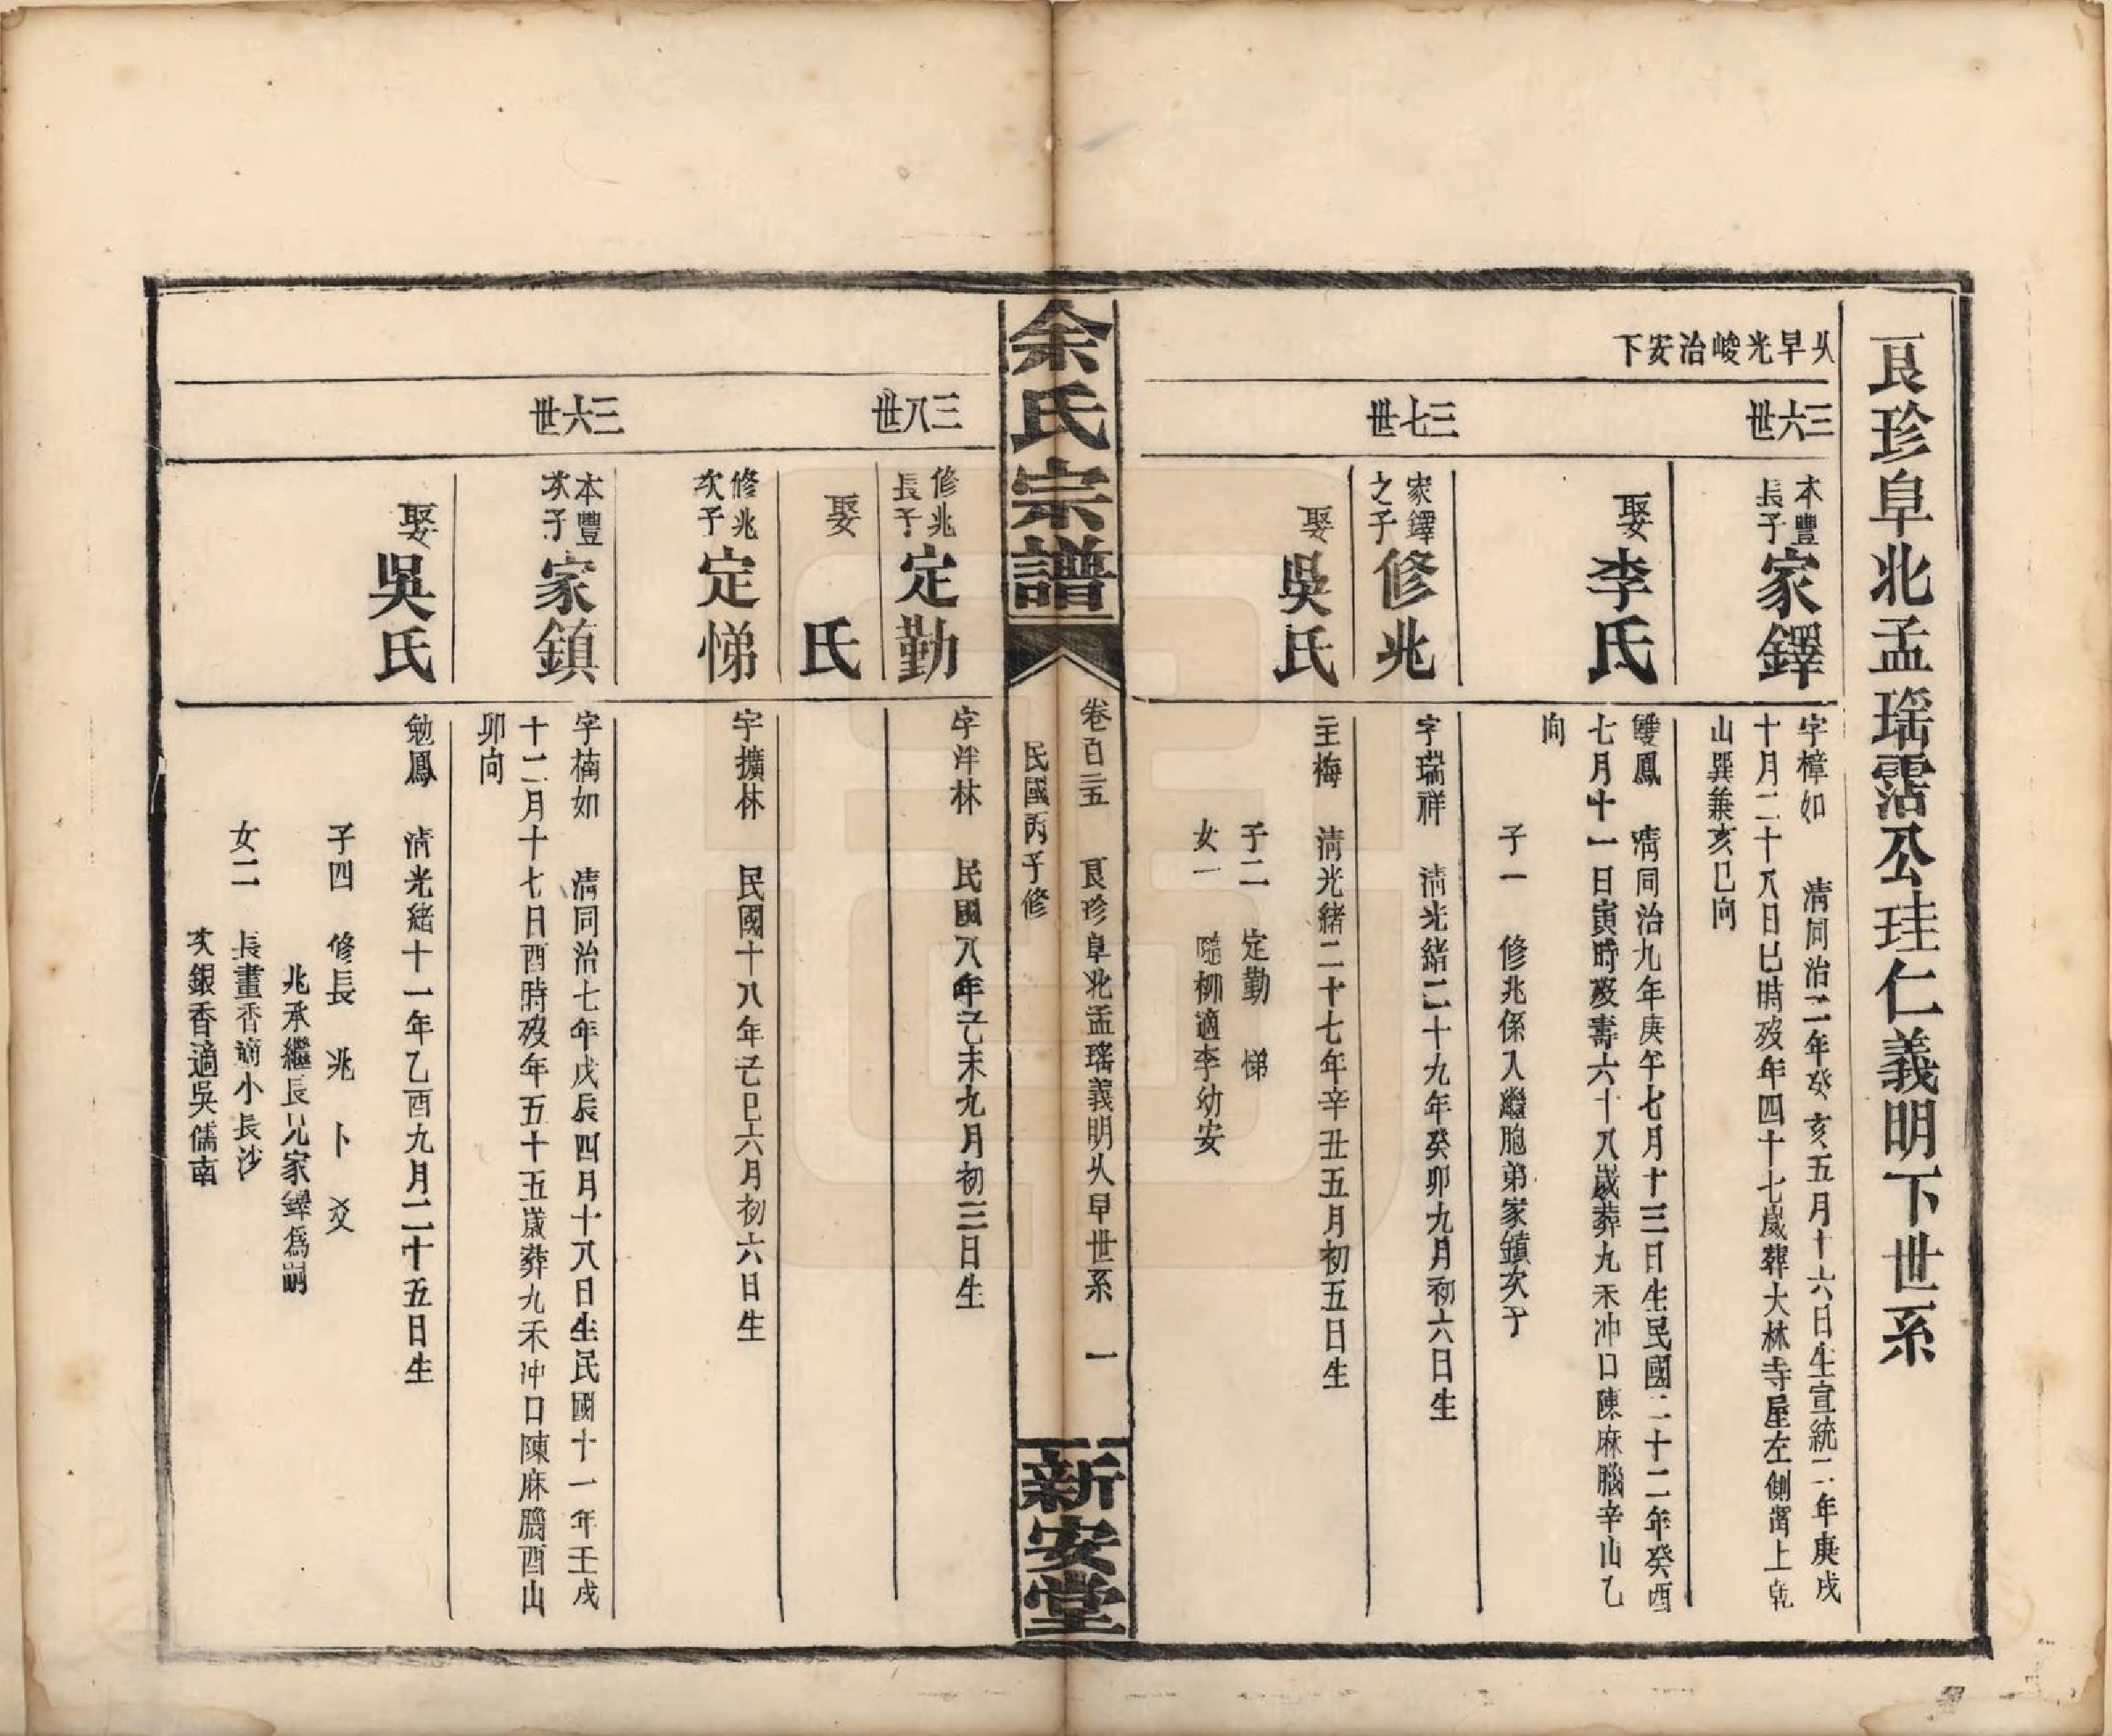 艮珍阜北孟瑤霑公珪仁義明下世系
从早光峻治安下
三六世
本豐長子家鐸
字樟如 清同治二年癸亥五月十六日生宣統二年庚戌
十月二十八日巳時歿年四十七歲葬大林寺屋左側嘴上乾
山巽兼亥巳向
娶李氏
雙鳳 清同治九年庚午七月十三日生民國二十二年癸酉
七月十一日寅時歿壽六十八歲葬九禾冲口陳麻腦辛山乙
向
子一 修兆係入繼胞弟家鎮次子
三七世
家鐸之子修兆
字瑞祥 清光緒二十九年癸卯九月初六日生
娶吳氏
主梅 清光緒二十七年辛丑五月初五日生
子二 定勤 悌
女一 隨柳適李幼安
余氏宗譜
卷百三五 艮珍阜北孟瑤義明从早世系 一
民國丙子修
新安堂
三八世
修兆長子定勤
字洋林 民國八年己未九月初三日生
娶 氏
修兆次子定悌
字擴林 民國十八年己巳六月初六日生
三六世
本豐次子家鎮
字楠如 清同治七年戊辰四月十八日生民國十一年壬戌
十二月十七日酉時歿年五十五歲葬九禾冲口陳麻腦酉山
卯向
娶吳氏
勉鳳 清光緒十一年乙酉九月二十五日生
子四 修長 兆 卜 爻
兆承繼長兄家鐸爲嗣
女二 長畫香適小長沙
次銀香適吳儒南